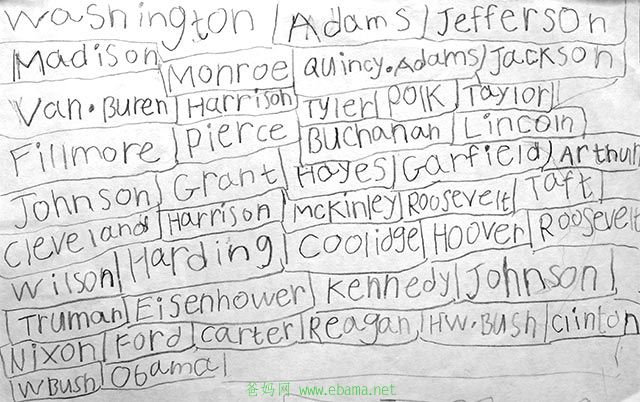 Washington Adams Jefferson
Madison Monroe Quincy.Adams Jackson
Van.Buren Harrison Tyler Polk Taylor
Fillmore Pierce Buchanan Lincoln
Johnson Grant Hayes Garfield Arthur
Cleveland Harrison McKinley Roosevelt Taft
Wilson Harding Coolidge Hoover Roosevelt
Truman Eisenhower Kennedy Johnson
Nixon Ford Carter Reagan HW.Bush Clinton
W Bush Obama
爸妈网 www.ebama.net